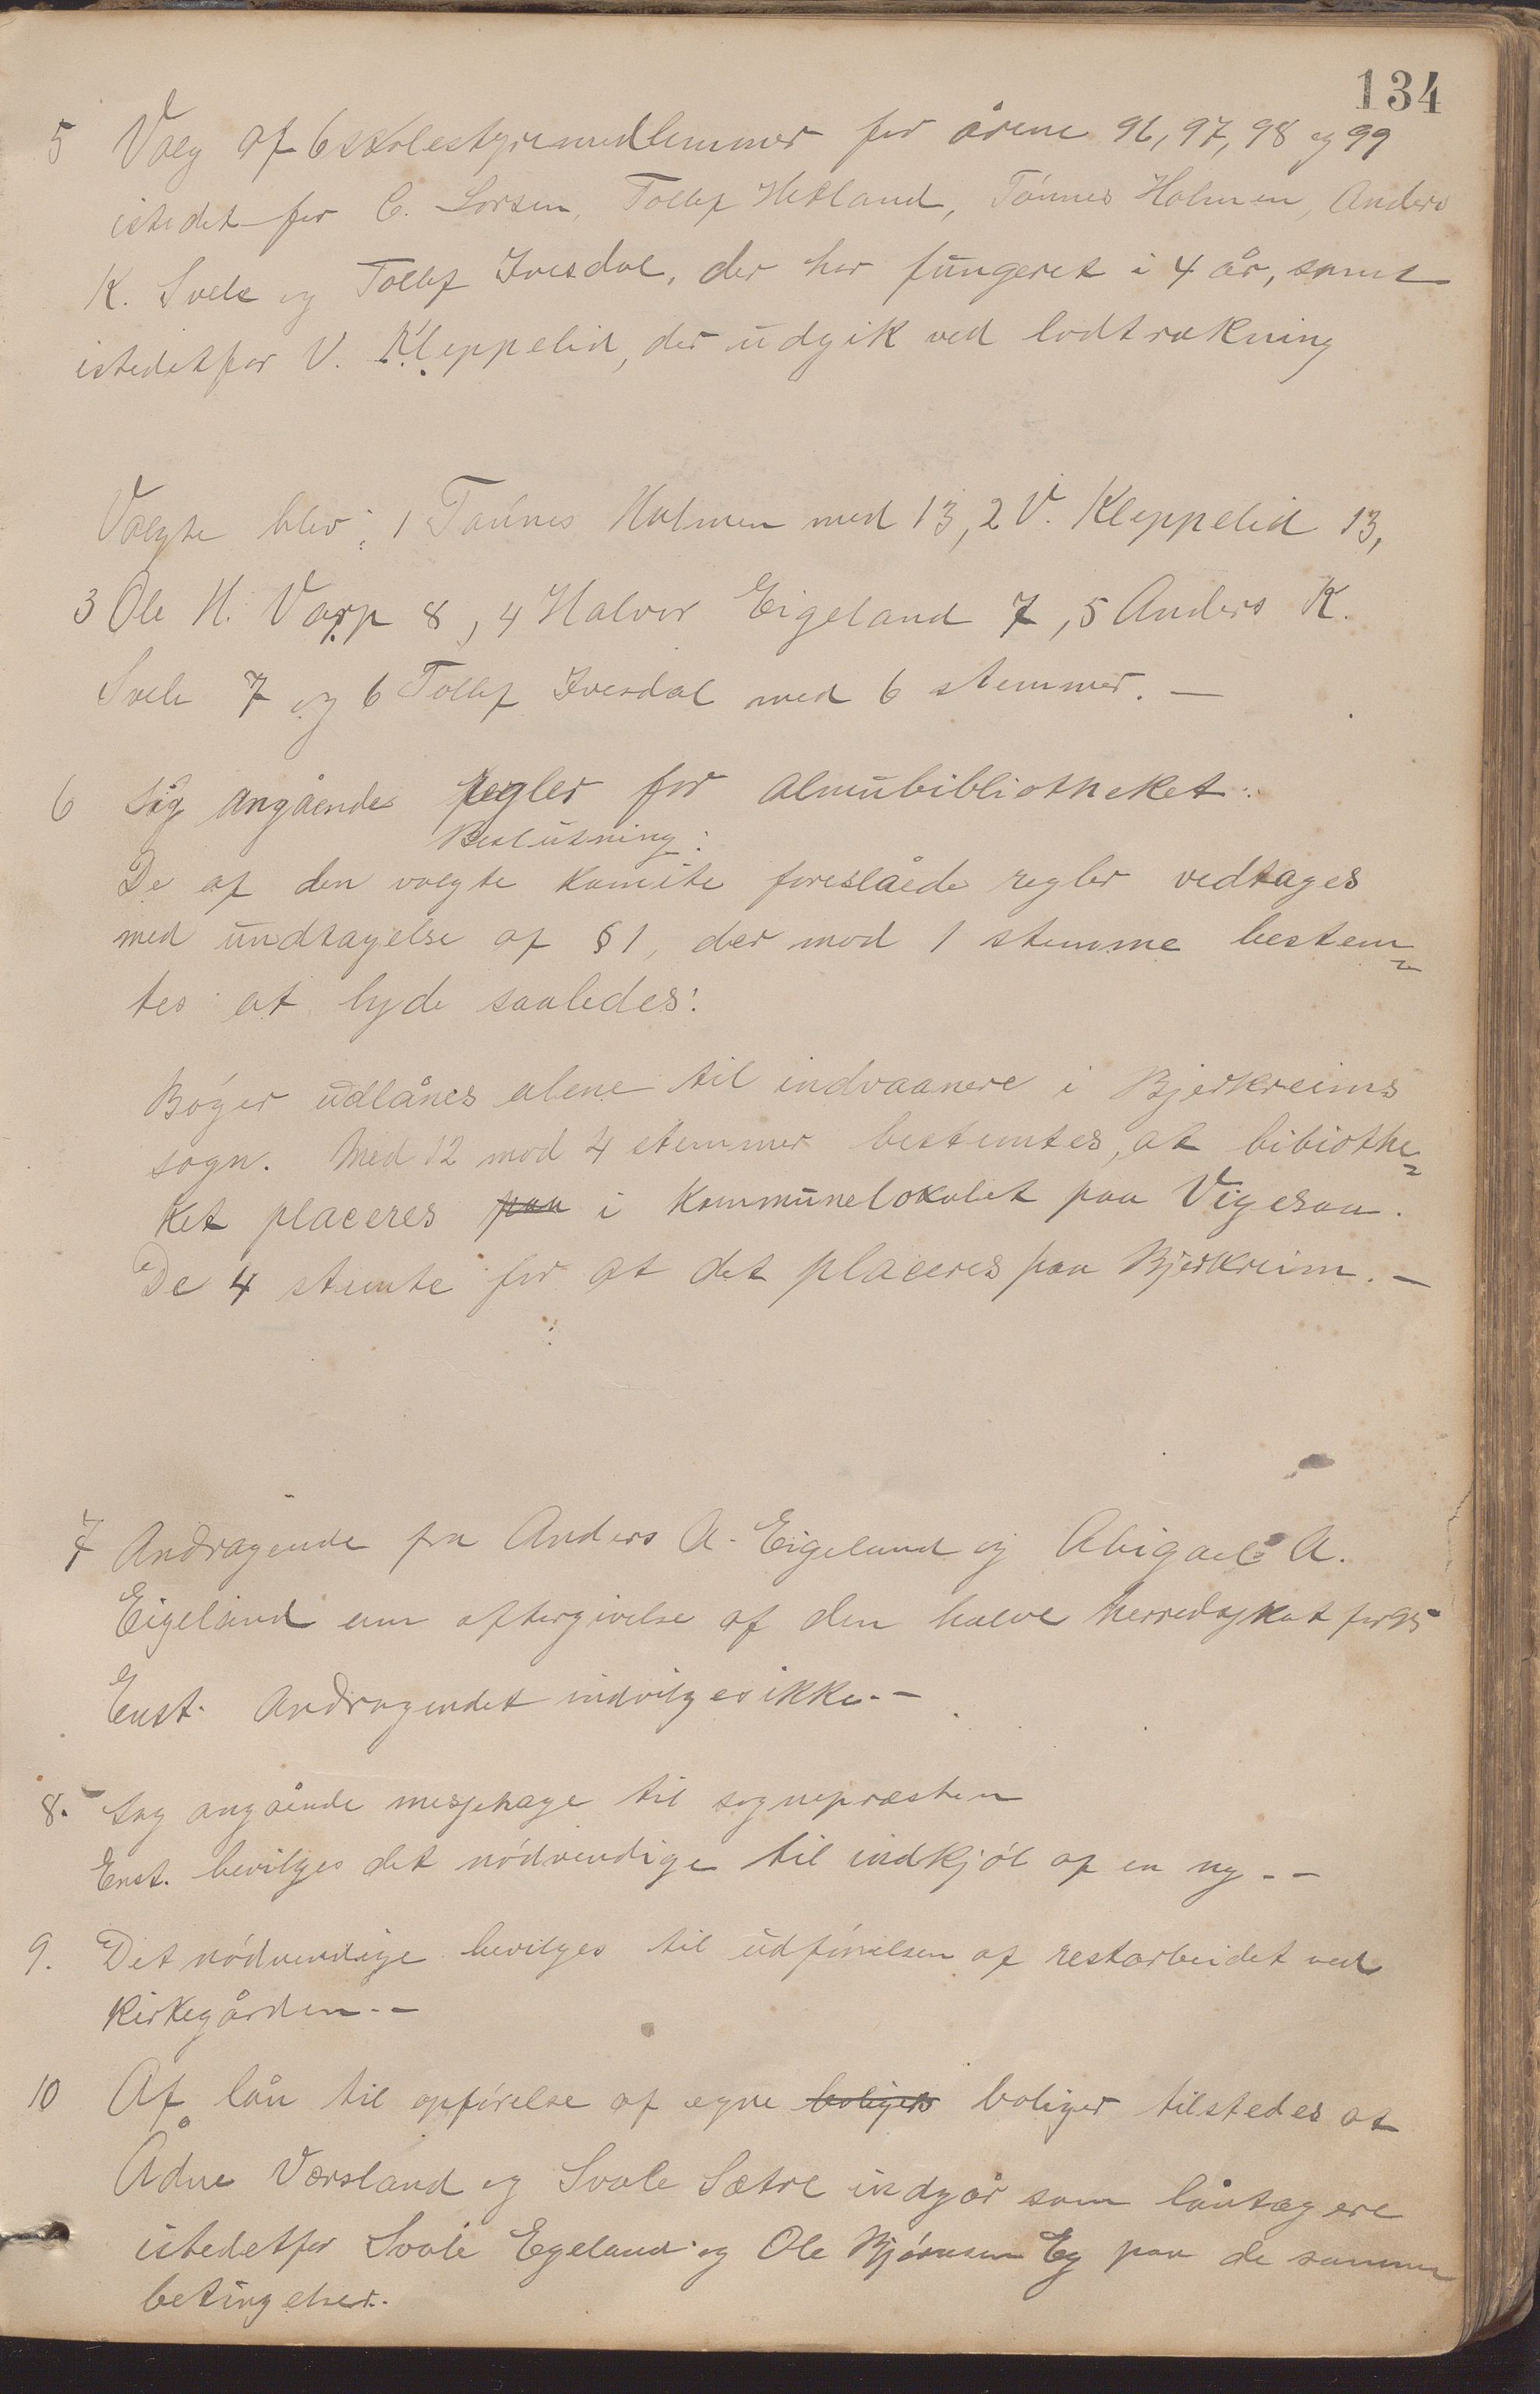 134
5 Valg af 6 skolestyremedlemmer for årene 96, 97, 98 og 99
istedet for C. Lorsen, Tollef Hetland, Tónnes Holmen, Anders
K. Svele og Tollef Ivesdal, der har fungeret i 4 år, samt
istedetfor V. Kleppelid, der udgik ved lodtrækning
Valgte blev: 1 Tónnes Holmen med 13, 2 V. Kleppelid 13,
3 Ole H. Varp 8, 4 Halvor Eigeland 7, 5 Anders K.
Svele 7 og 6 Tollef Ivesdal med 6 stemmer. —
6 Sag angående regler for almubibliotheket:
Beslutning:
De af den valgte komite foreslåede regler vedtages
med undtagelse af § 1, der mod 1 stemme bestem=
tes at lyde saaledes:
Bóger udlånes alene til indvaanere i Bjerkreims
sogn. Med 12 mod 4 stemmer bestemtes, at bibiothe=
ket placeres paa i Kommunelokalet paa Vigesaa.
De 4 stemte for at det placeres paa Bjerkreim. —
7 Andragende fra Anders A. Eigeland og Abigael A.
Eigeland om eftergivelse af den halve herredsskat for 95
Enst. Andragendet indvilges ikke. —
8. Sag angående messehage til sognepræsten
Enst. bevilges det nódvendige til indkjób af en ny. —
9. Det nódvendige bevilges til udfórelsen af restarbeidet ved
Kirkegården. —
10 Af lån til opfórelse af egne boliger boliger tilstedes at
Ådne Versland og Svale Sætre indgår som låntagere
istedetfor Svale Egeland og Ole Bjórnsen Eg paa de samme
betingelser.